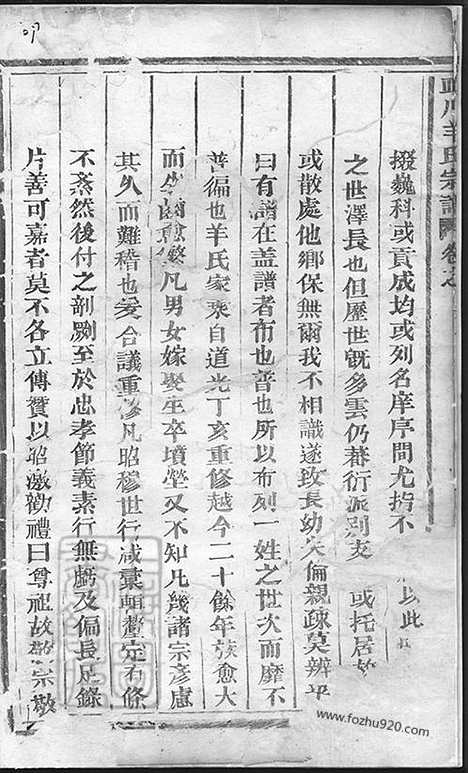 川羊氏宗譜 卷之
掇巍科或貢成均或列名庠序間尤指不 以此
之世澤長也但歷世既多雲仍蕃衍派別支 或托居
或散處他鄉保無爾我不相識遂致長幼失倫親疎莫辨乎
曰有譜在盖譜者布也普也所以布列一姓之世次而靡不
善徧也羊氏家乘自道光丁亥重修越今二十餘年族愈大
而生齒愈繁凡男女嫁娶生卒墳塋又不知凡幾諸宗彥慮
其久而難稽也爰合議重修凡昭穆世行咸彙輯釐定有條
不紊然後付之剞劂至於忠孝節義素行無虧及偏長足錄
片善可嘉者莫不各立傳贊以昭激勸禮曰尊祖故敬宗敬
www.fozhu920.com